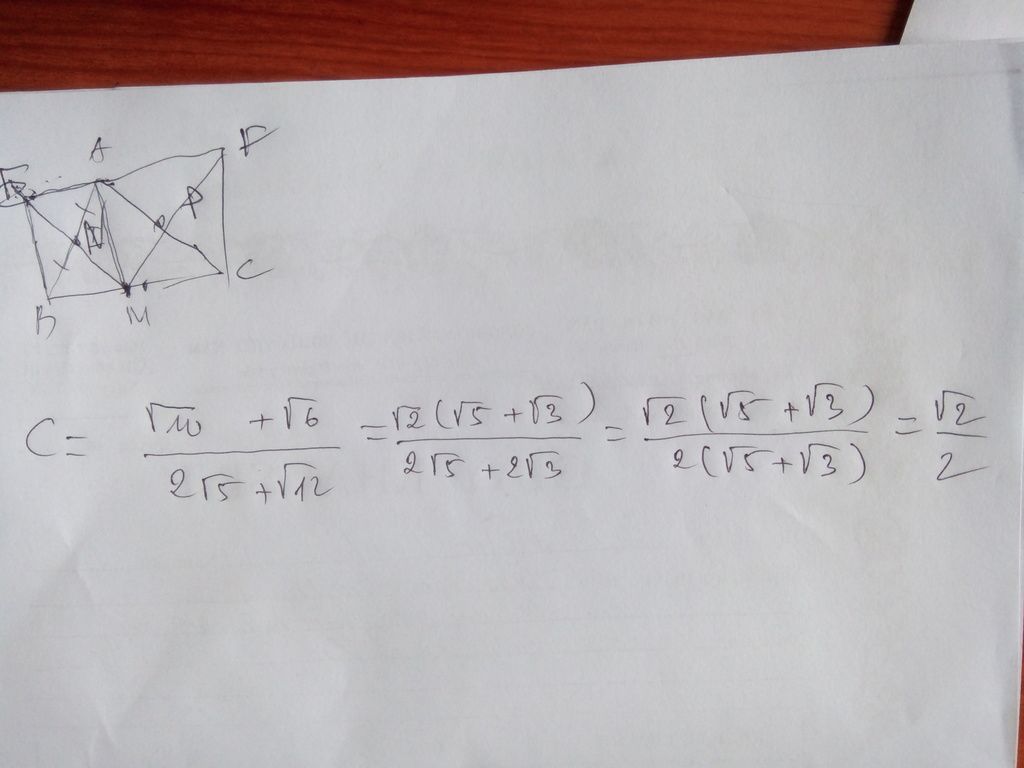 A
F
E
N
P
C
B
M
C = (√10 + √6)/(2√5 + √12) = √2(√5 + √3)/(2√5 + 2√3) = √2(√5 + √3)/(2(√5 + √3)) = √2/2